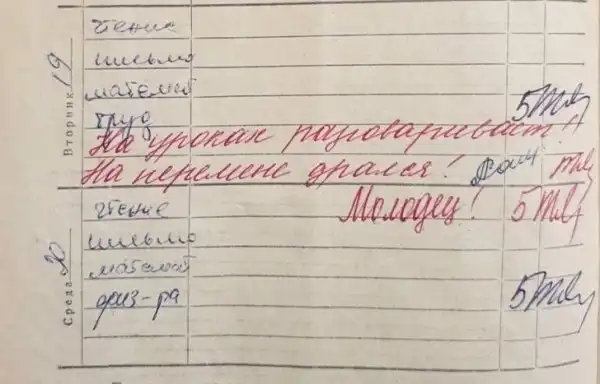 Вторник 19
чтение
письмо
математ
труд 5
На уроках разговаривает!!
На перемене дрался!
Среда 20
чтение Молодец! 5
письмо
математ
физ-ра 5